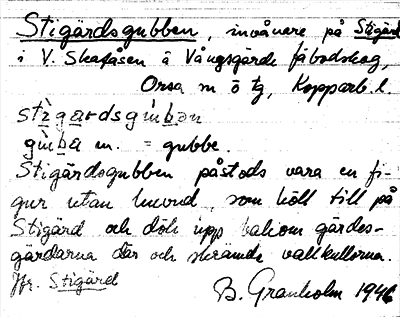 Stigärdsgubben, invånare på Stigärd
i V. Skafåsen å Vångsgärde fäbodskog,
Orsa sn ö tg, Kopparb. l.
stìgardsgùbən
gùba m. = gubbe.
Stigärdsgubben påstods vara en fi-
gur utan huvud, som höll till på
Stigärd och dök upp bakom gärdes-
gårdarna där och skrämde vallkullorna.
Jfr. Stigärd
B. Granholm 1946